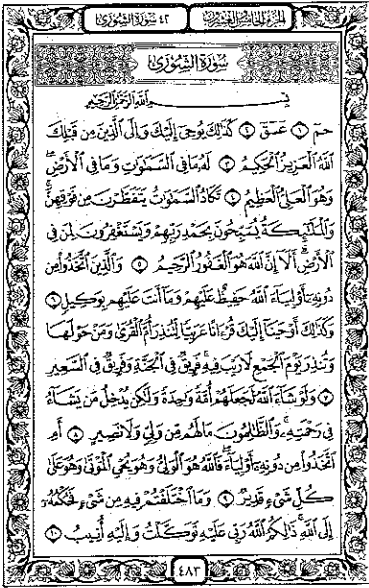 الجزء الخامس والعشرون
٤٢ سورة الشورى
سُورَةُ الشُّورَىٰ
بِسْمِ اللَّهِ الرَّحْمَٰنِ الرَّحِيمِ
حمٓ ١ عٓسٓقٓ ٢ كَذَٰلِكَ يُوحِىٓ إِلَيْكَ وَإِلَى ٱلَّذِينَ مِن قَبْلِكَ
ٱللَّهُ ٱلْعَزِيزُ ٱلْحَكِيمُ ٣ لَهُۥ مَا فِى ٱلسَّمَٰوَٰتِ وَمَا فِى ٱلْأَرْضِ ۖ
وَهُوَ ٱلْعَلِىُّ ٱلْعَظِيمُ ٤ تَكَادُ ٱلسَّمَٰوَٰتُ يَتَفَطَّرْنَ مِن فَوْقِهِنَّ ۚ
وَٱلْمَلَٰٓئِكَةُ يُسَبِّحُونَ بِحَمْدِ رَبِّهِمْ وَيَسْتَغْفِرُونَ لِمَن فِى
ٱلْأَرْضِ ۗ أَلَآ إِنَّ ٱللَّهَ هُوَ ٱلْغَفُورُ ٱلرَّحِيمُ ٥ وَٱلَّذِينَ ٱتَّخَذُوا۟ مِن
دُونِهِۦٓ أَوْلِيَآءَ ٱللَّهُ حَفِيظٌ عَلَيْهِمْ وَمَآ أَنتَ عَلَيْهِم بِوَكِيلٍ ٦
وَكَذَٰلِكَ أَوْحَيْنَآ إِلَيْكَ قُرْءَانًا عَرَبِيًّا لِّتُنذِرَ أُمَّ ٱلْقُرَىٰ وَمَنْ حَوْلَهَا
وَتُنذِرَ يَوْمَ ٱلْجَمْعِ لَا رَيْبَ فِيهِ ۚ فَرِيقٌ فِى ٱلْجَنَّةِ وَفَرِيقٌ فِى ٱلسَّعِيرِ
٧ وَلَوْ شَآءَ ٱللَّهُ لَجَعَلَهُمْ أُمَّةً وَٰحِدَةً وَلَٰكِن يُدْخِلُ مَن يَشَآءُ
فِى رَحْمَتِهِۦ ۚ وَٱلظَّٰلِمُونَ مَا لَهُم مِّن وَلِىٍّ وَلَا نَصِيرٍ ٨ أَمِ
ٱتَّخَذُوا۟ مِن دُونِهِۦٓ أَوْلِيَآءَ ۖ فَٱللَّهُ هُوَ ٱلْوَلِىُّ وَهُوَ يُحْىِ ٱلْمَوْتَىٰ وَهُوَ عَلَىٰ
كُلِّ شَىْءٍ قَدِيرٌ ٩ وَمَا ٱخْتَلَفْتُمْ فِيهِ مِن شَىْءٍ فَحُكْمُهُۥٓ
إِلَى ٱللَّهِ ۚ ذَٰلِكُمُ ٱللَّهُ رَبِّى عَلَيْهِ تَوَكَّلْتُ وَإِلَيْهِ أُنِيبُ ١٠
٤٨٣